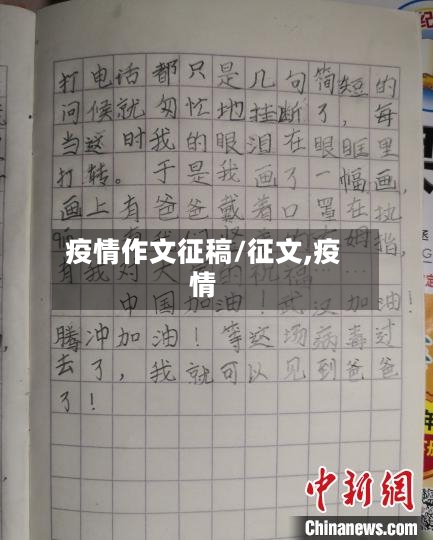 打电话都只是几句简短的
问候就匆忙地挂断了，每
当这时我的眼泪在眼眶里
打转。于是我画了一幅画，
画上有爸爸戴着口罩在执
姆指，
疫情作文征稿/征文,疫
情
有我对大
的祝福……
中国加油！武汉加油！
腾冲加油！等这场病毒过
去了，我就可以见到爸爸
了！
中新网
Chinanews.com